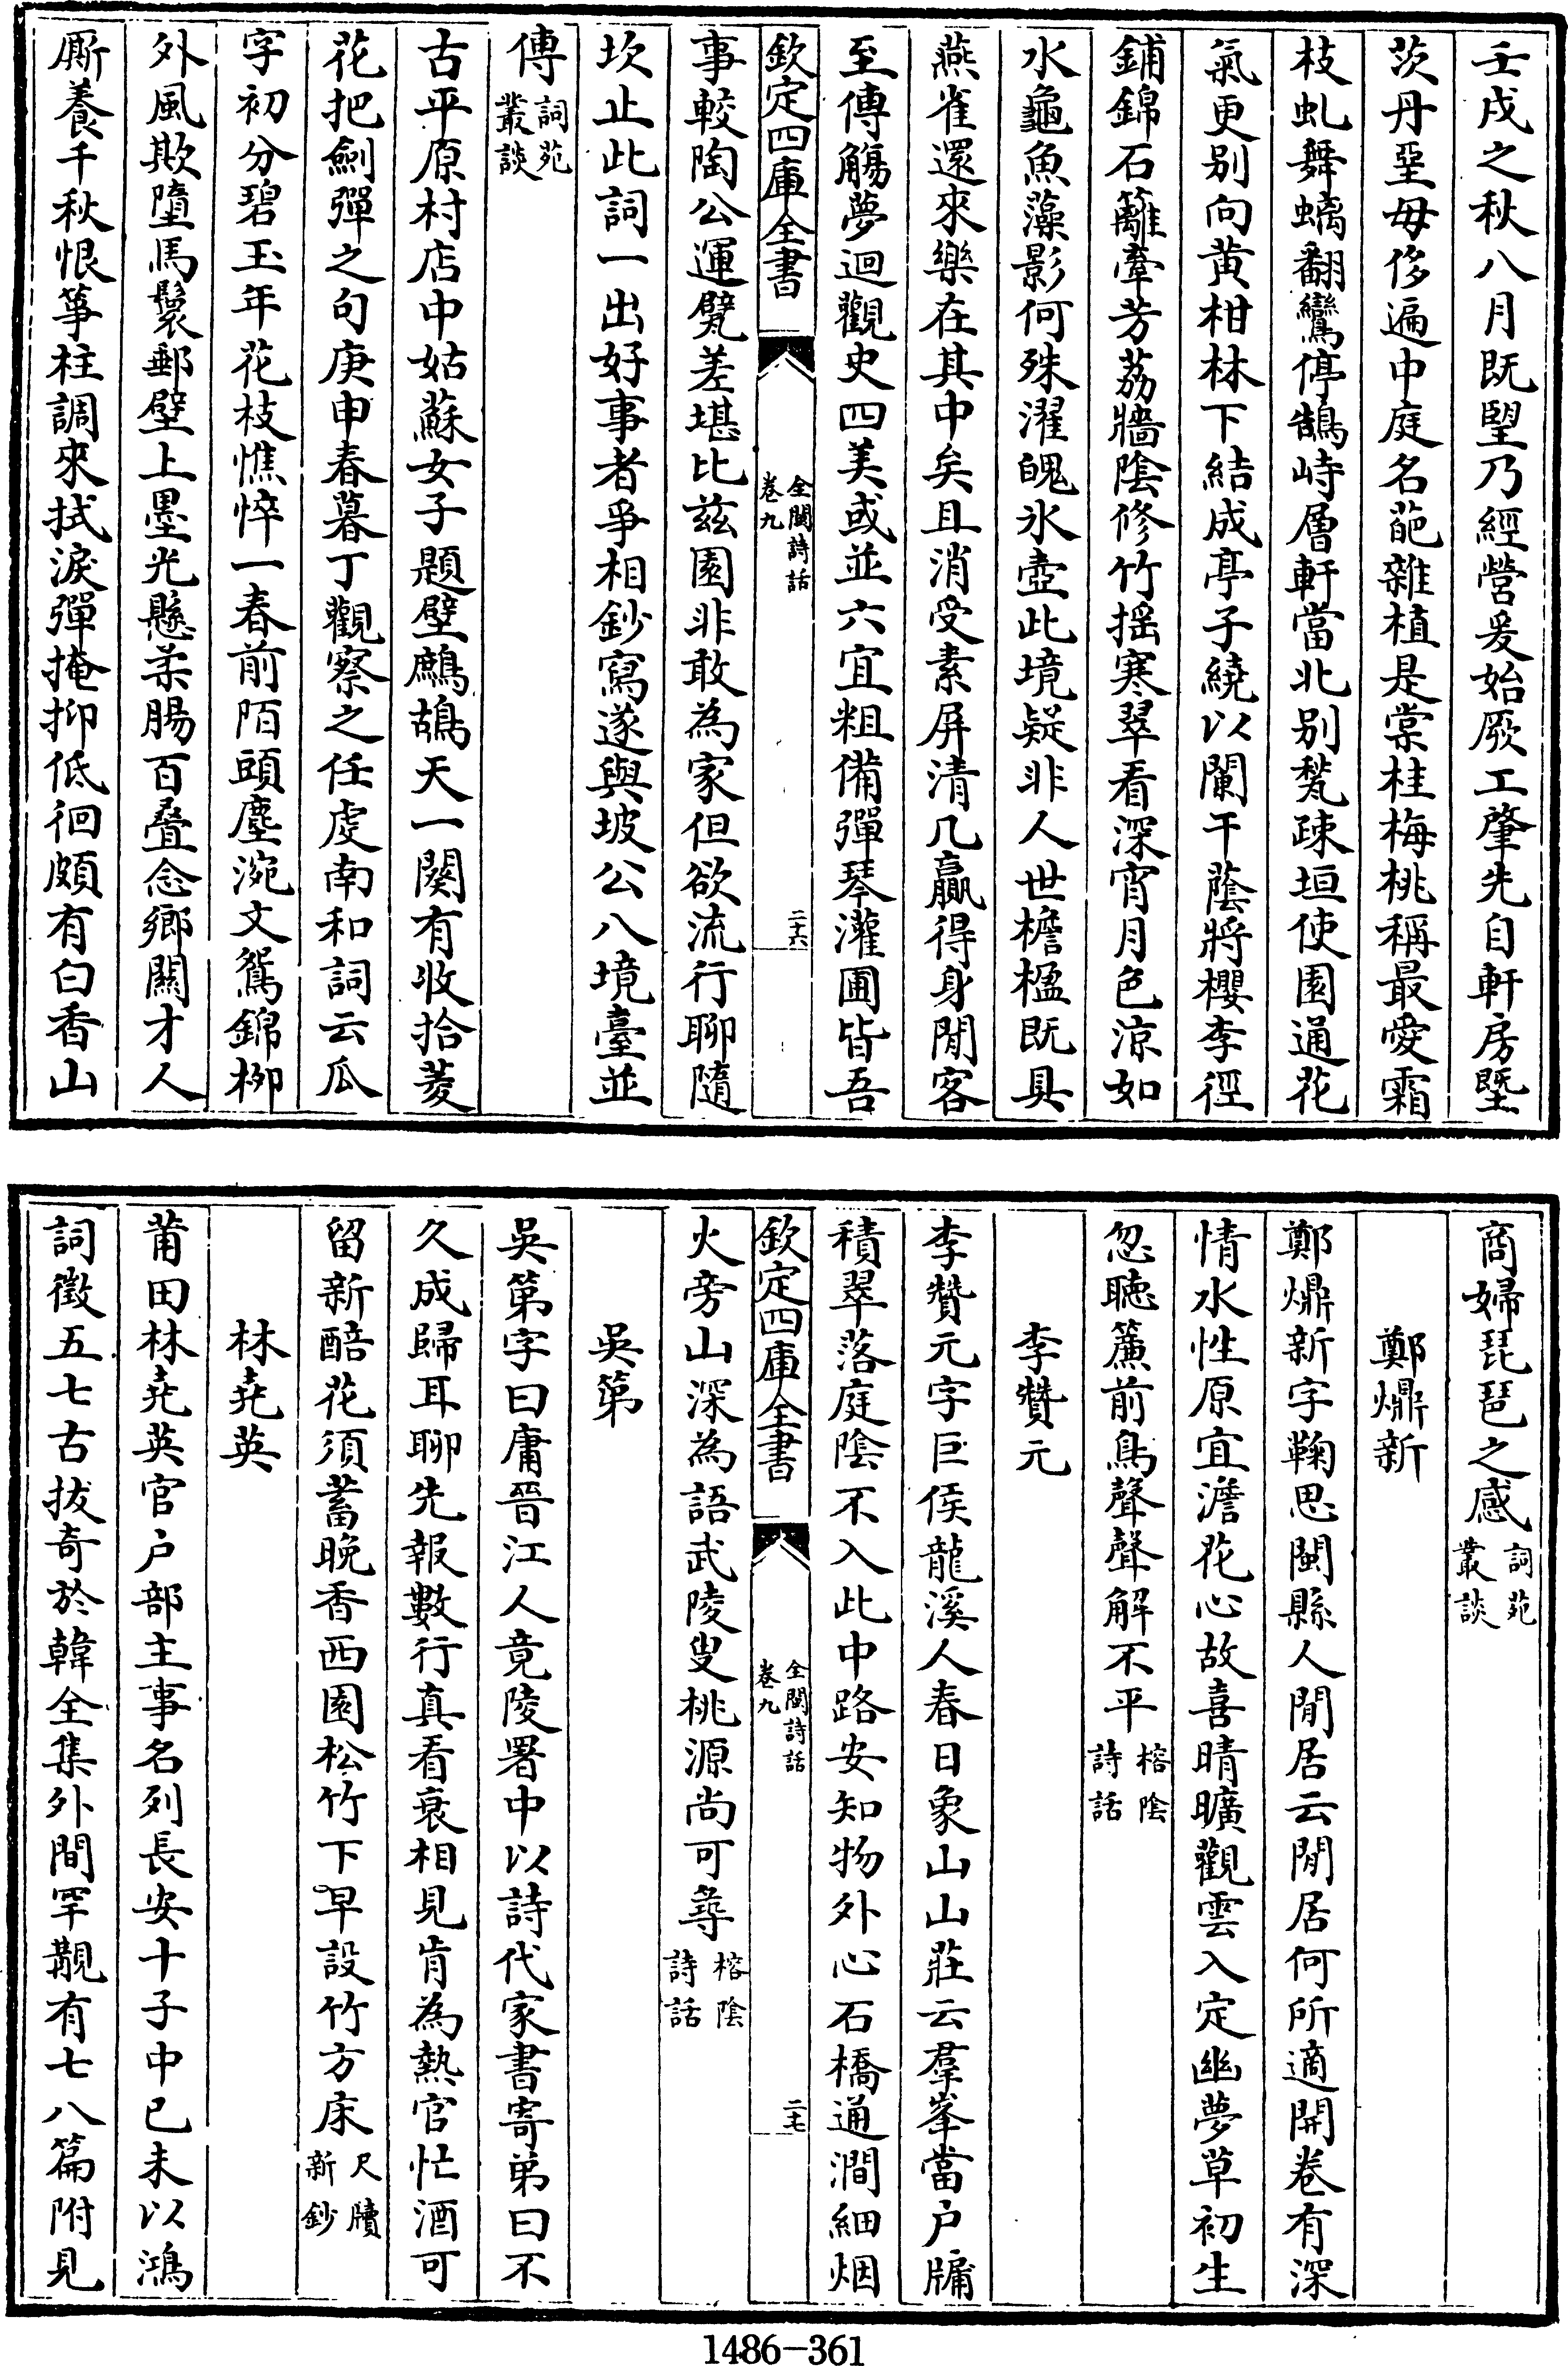 壬戌之秋八月既望乃經營爰始厥工肇先自軒房暨
茨丹堊毋侈遍中庭名葩雜植是棠桂梅桃稱最愛霜
枝虬舞螭翻鸞停鵠峙層軒當北別甃疎垣使園通花
氣更別向黄柑林下結成亭子繞以闌干蔭將櫻李徑
鋪錦石籬牽芳荔牆陰修竹揺寒翠看深宵月色涼如
水龜魚藻影何殊濯魄氷壺此境疑非人世檐楹既具
燕雀還來樂在其中矣且消受素屏清几贏得身閒客
至傳觴夢迴觀史四美或並六宜粗備彈琴灌圃皆吾
欽定四庫全書
全閩詩話
卷九
二十六
事較陶公運甓差堪比兹園非敢為家但欲流行聊隨
坎止此詞一出好事者爭相鈔寫遂與坡公八境臺並
傳詞苑叢談
古平原村店中姑蘇女子題壁鷓鴣天一闋有收拾菱
花把劍彈之句庚申春暮丁觀察之任虔南和詞云瓜
字初分碧玉年花枝憔悴一春前陌頭塵涴文鴛錦栁
外風欺墮馬鬟郵壁上墨光懸柔腸百疊念鄉關才人
厮養千秋恨箏柱調來拭淚彈掩抑低徊頗有白香山
商婦琵琶之感詞苑叢談
鄭𤑶新
鄭𤑶新字鞠思閩縣人閒居云閒居何所適開卷有深
情水性原宜澹花心故喜晴曠觀雲入定幽夢草初生
忽聽簾前鳥聲聲解不平榕陰詩話
李贊元
李贊元字巨侯龍溪人春日象山山莊云羣峯當户牖
積翠落庭陰不入此中路安知物外心石橋通澗細烟
欽定四庫全書
全閩詩話
卷九
二十七
火旁山深為語武陵叟桃源尚可尋榕陰詩話
吳第
吳第字曰庸晉江人竟陵署中以詩代家書寄弟曰不
久成歸耳聊先報數行真看衰相見肯為熱官忙酒可
留新醅花須蓄晚香西園松竹下早設竹方床尺牘新鈔
林堯英
莆田林堯英官户部主事名列長安十子中已未以鴻
詞徵五七古拔奇於韓全集外間罕覯有七八篇附見
1486-361